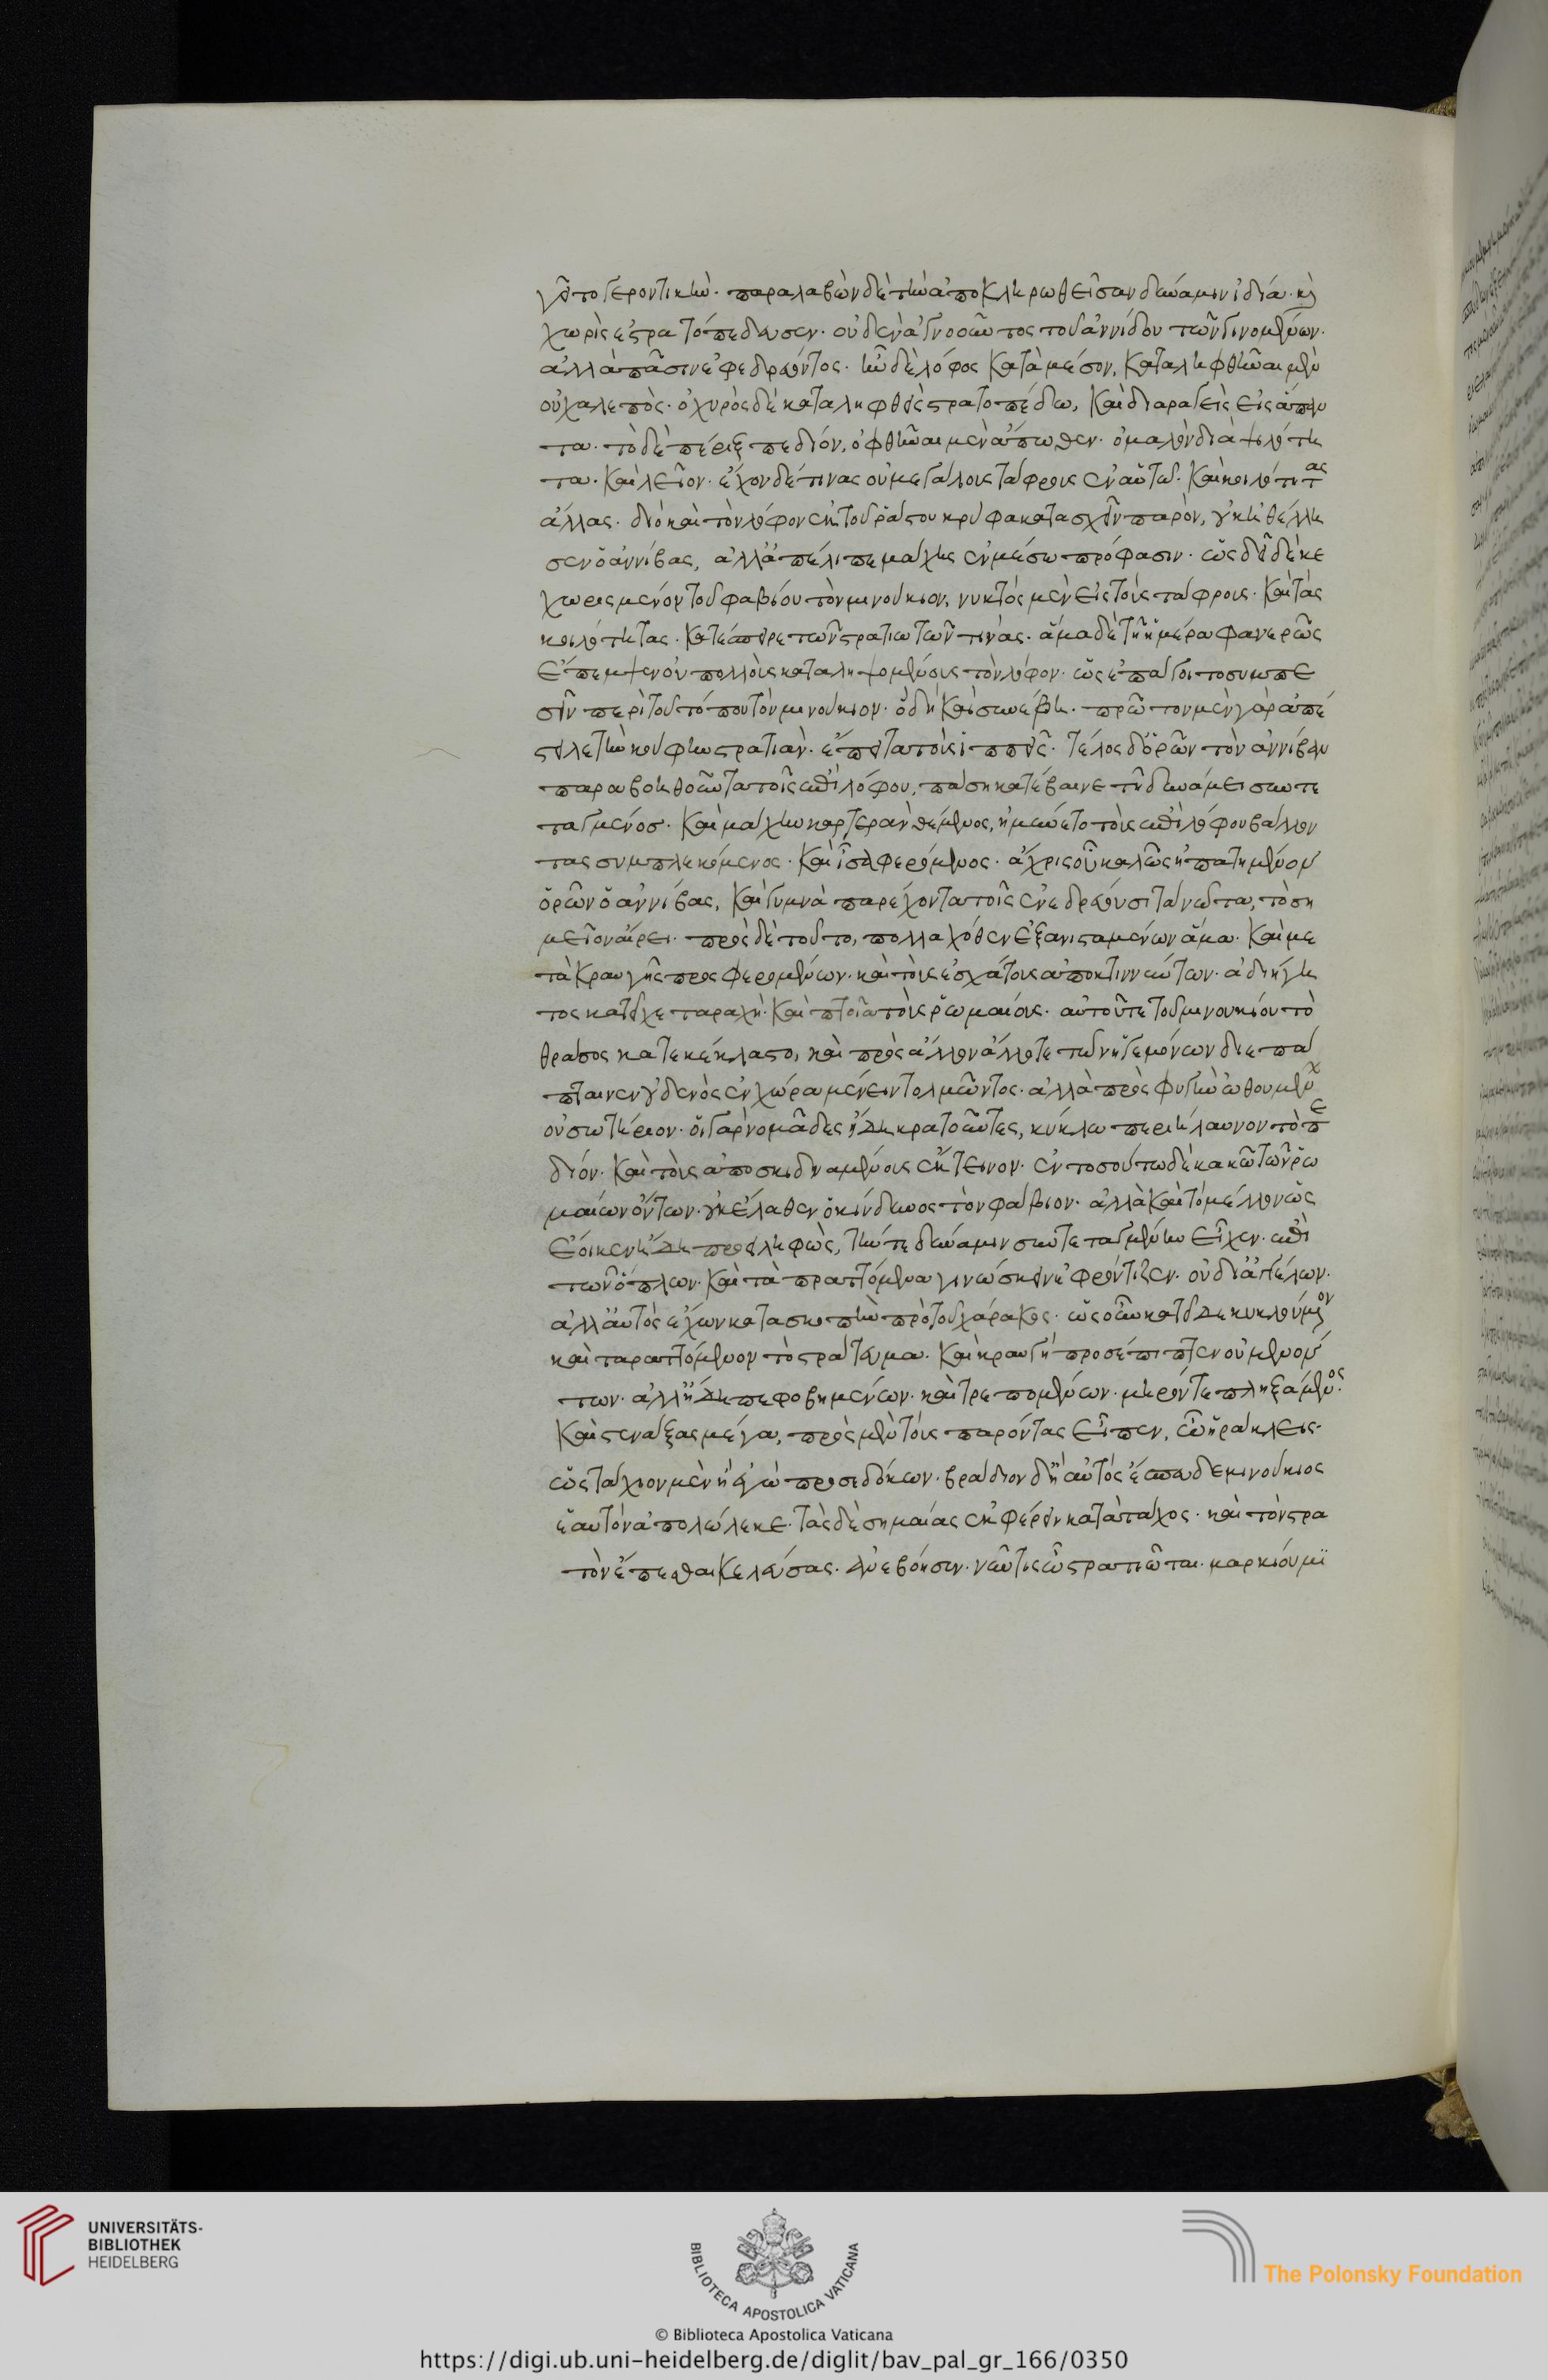 γεῖτο γεροντικὴν· παραλαβὼν δὲ τὴν ἀποκληρωθεῖσαν δύναμιν ἰδία· καὶ
χωρὶς ἐστρατόπεδευσεν· οὐδὲν ἀγνοοῦντος τοῦ ἀννίβου τῶν γινομένων·
ἀλλὰ πᾶσιν ἐφεδρεύοντος· ἦν δὲ λόφος κατὰ μέσον, καταληφθῆναι μὲν
οὐ χαλεπὸς· ὀχυρὸς δὲ καταληφθεὶς στρατοπέδω, καὶ διαρκεῖς εἰς ἅπαν
τα· τὸ δὲ πέριξ πεδίον, ὀφθῆναι μὲν ἄπωθεν· ὁμαλὸν διὰ ψιλότη
τα· καὶ λεῖον· ἔχον δέ τινας οὐ μεγάλους τάφρους ἐν αὑτῶ· καὶ κοιλότητας
ἄλλας· διὸ καὶ τὸν λόφον ἐκ τοῦ ῥάστου κρύφα κατασχεῖν παρὸν, οὐκ ἠθέλη
σεν ὁ ἀννίβας, ἀλλ' ἀπέλιπε μάχης ἐν μέσω πρόφασιν· ὡς δ' εἶδε κε
χωρισμένον τοῦ φαβίου τὸν μινούκιον, νυκτός μὲν εἰς τοὺς τάφρους· καὶ τὰς
κοιλότητας· κατέσπειρε τῶν στρατιωτῶν τινάς· ἅμα δὲ τῆ ἡμέρα φανερῶς
ἔπεμψεν οὐ πολλοὺς καταληψομένους τὸν λόφον· ὡς ἐπάγοιτο συμπε
σεῖν περὶ τοῦ τόπου τὸν μινούκιον· ὃ δὴ καὶ συνέβη· πρῶτον μὲν γὰρ ἀπέ
στειλε τὴν κούφην στρατιὰν· ἔπειτα τοὺς ἱππεῖς· τέλος δ' ὁρῶν τὸν ἀννίβαν
παραβοηθοῦντα τοῖς ἐπὶ λόφου, πάση κατέβαινε τῆ δυνάμει συντε
ταγμένος· καὶ μάχην καρτερὰν θέμενος, ἠμύνετο τοὺς ἐπὶ λόφου βάλλον
τας συμπλεκόμενος· καὶ ἴσα φερόμενος· ἄχρις οὗ καλῶς ἠπατημένον
ὁρῶν ὁ ἀννίβας, καὶ γυμνὰ παρέχοντα τοῖς ἐνεδρεύουσι τὰ νῶτα, τὸ ση
μεῖον αἴρει· πρὸς δὲ τοῦτο, πολλαχόθεν ἐξανισταμένων ἅμα· καὶ με
τὰ κραυγῆς προσφερομένων· καὶ τοὺς ἐσχάτους ἀποκτιννύντων· ἀδιήγη
τος κατεῖχε ταραχὴ· καὶ πτοία τοὺς ῥωμαίους· αὐτοῦ τε τοῦ μινουκίου τὸ
θράσος κατεκέκλαστο, καὶ πρὸς ἄλλον ἄλλοτε τῶν ἡγεμόνων διεπά
πταινεν οὐδενὸς ἐν χώρα μένειν τολμῶντος· ἀλλὰ πρὸς φυγὴν ὠθουμένων
οὐ σωτήριον· οἱ γὰρ νομάδες ἤδη κρατοῦντες, κύκλω περιήλαυνον τὸ πε
δίον· καὶ τοὺς ἀποσκιδναμένους ἔκτεινον· ἐν τοσούτω δὲ κακῶ τῶν ῥω
μαίων ὄντων· οὐκ ἔλαθεν ὁ κίνδυνος τὸν φάβιον· ἀλλὰ καὶ τὸ μέλλον ὡς
ἔοικεν ἤδη προειληφὼς, τήν τε δύναμιν συντεταγμένην εἶχεν· ἐπὶ
τῶν ὅπλων· καὶ τὰ πραττόμενα γινώσκειν ἐφρόντιζεν· οὐ δι' ἀγγέλων·
ἀλλ' αὐτὸς ἔχων κατασκοπὴν πρὸ τοῦ χάρακος· ὡς οὖν κατεῖδε κυκλούμενον
καὶ ταραττόμενον τὸ στράτευμα· καὶ κραυγὴ προσέπιπτεν οὐ μενόν
των· ἀλλ' ἤδη πεφοβημένων· καὶ τρεπομένων· μηρόν τε πληξάμενος·
καὶ στενάξας μέγα, πρὸς μὲν τοὺς παρόντας εἶπεν, ὦ ἡράκλεις·
ὡς τάχιον μὲν ἢ ἐγὼ προσεδόκων· βράδιον δ' ἢ αὐτός ἔσπευδε μινούκιος
ἑαυτὸν ἀπολώλεκε· τὰς δὲ σημαίας ἐκφέρειν κατὰ τάχος· καὶ τὸν στρα
τὸν ἕπεσθαι κελεύσας· ἀνεβόησεν· νῦν τις ὦ στρατιῶται· μαρκίου μι
UNIVERSITÄTS-
BIBLIOTHEK
HEIDELBERG
BIBLIOTECA APOSTOLICA VATICANA
The Polonsky Foundation
© Biblioteca Apostolica Vaticana
https://digi.ub.uni-heidelberg.de/diglit/bav_pal_gr_166/0350